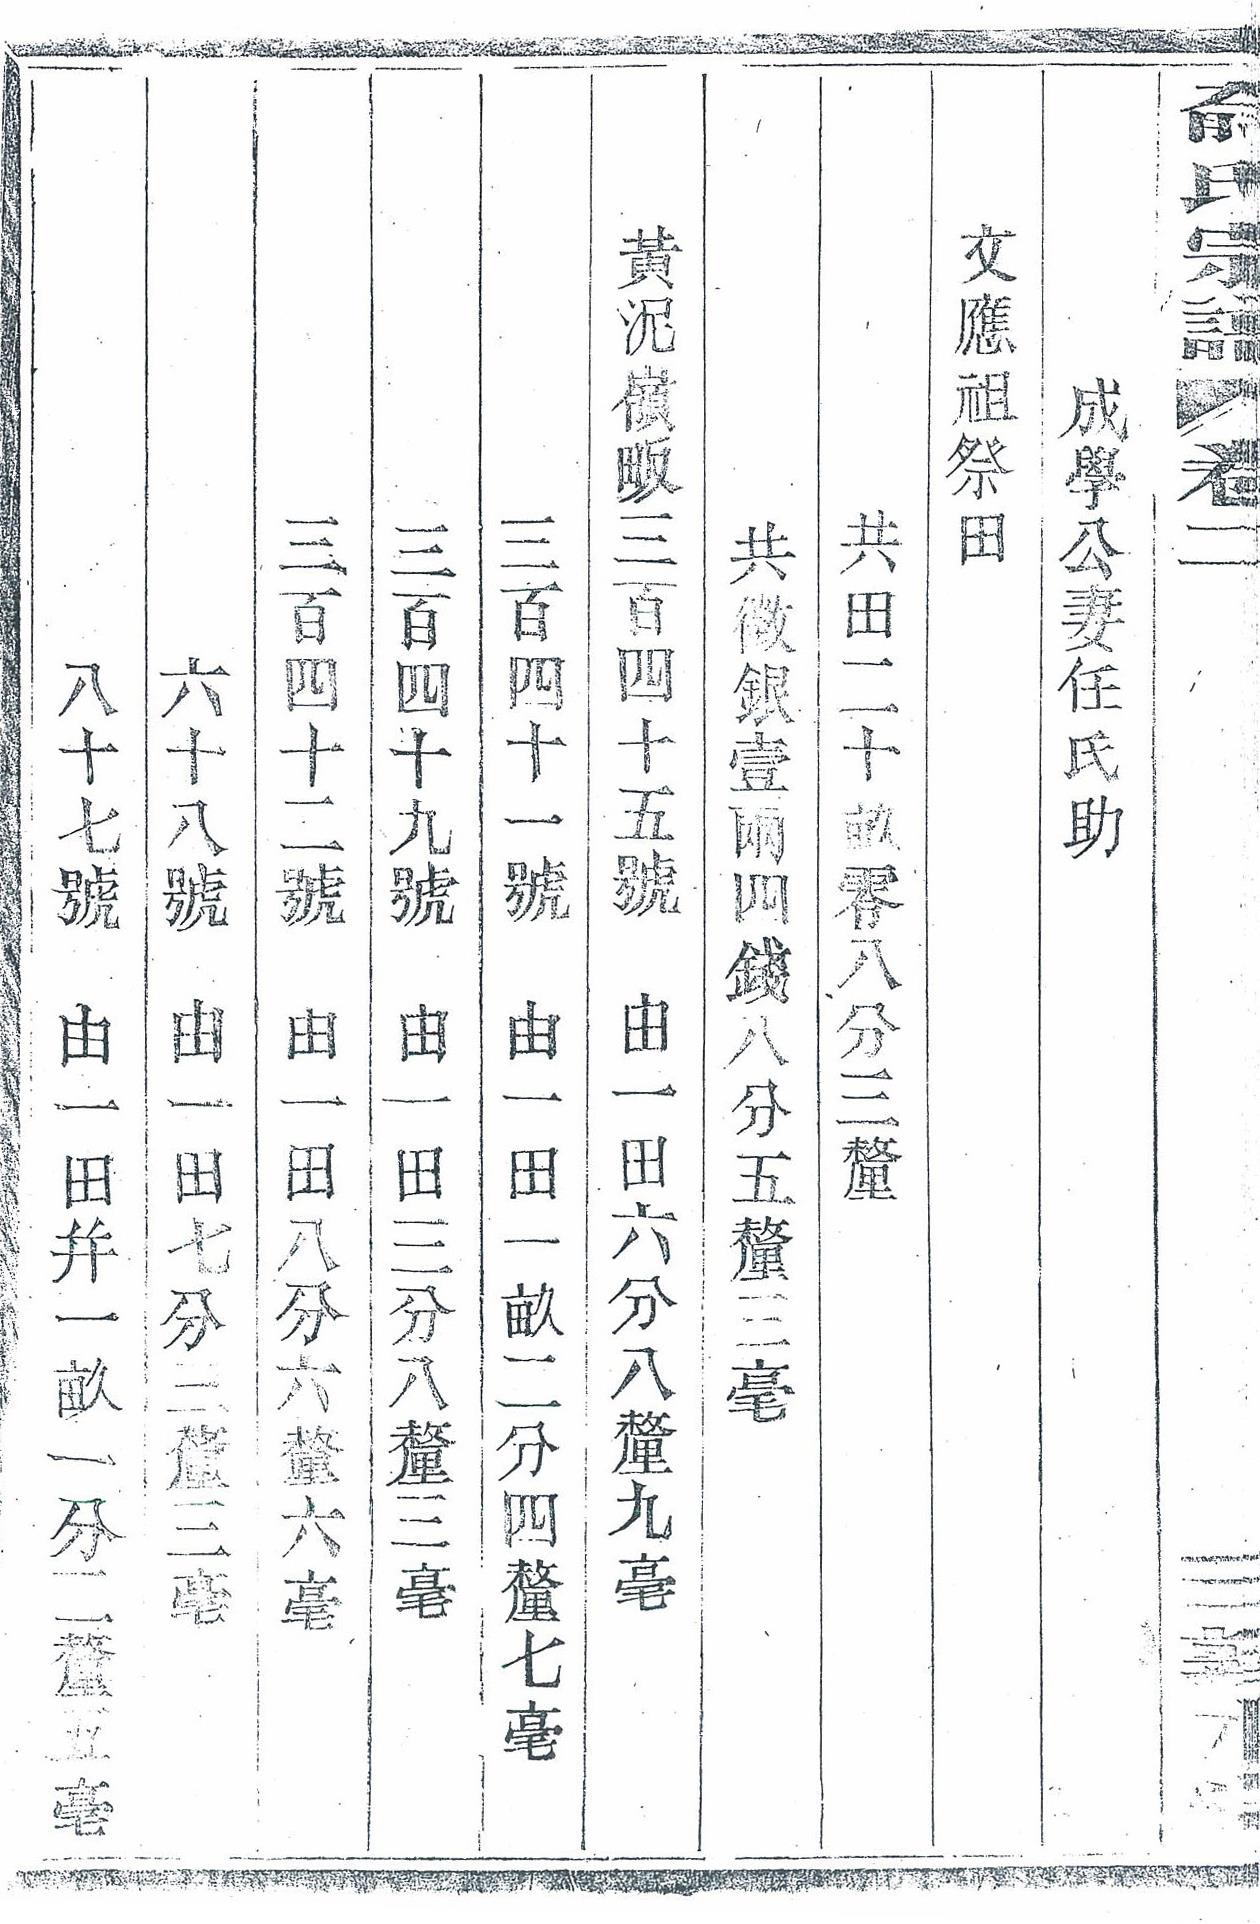 俞氏宗譜 卷二
成學公妻任氏助
文應祖祭田
共田二十畝零八分三釐
共徵銀壹兩四錢八分五釐三毫
黃泥嶺畈三百四十五號　由一田六分八釐九毫
三百四十一號　由一田一畝二分四釐七毫
三百四十九號　由一田三分八釐三毫
三百四十二號　由一田八分六釐六毫
六十八號　由一田七分三釐三毫
八十七號　由一田并一畝一分二釐五毫